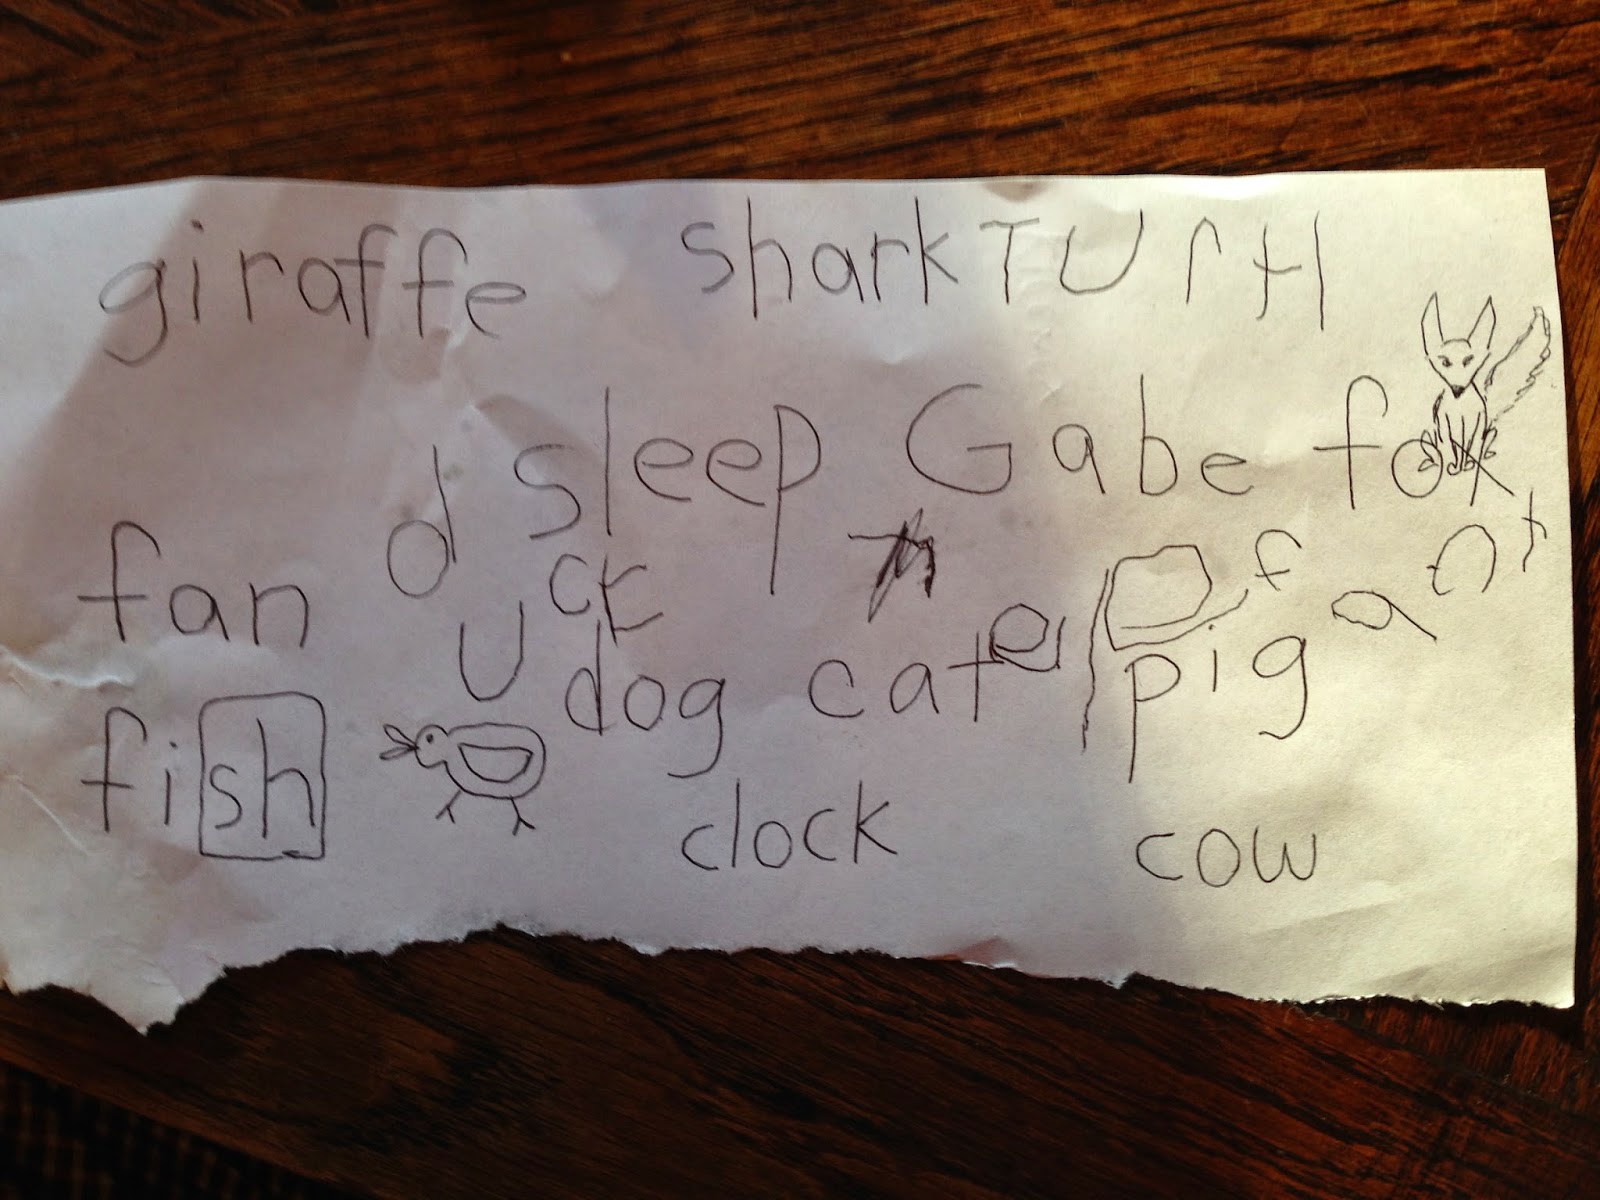 giraffe shark TUrtl
sleep Gabe fox
fan duck elefant
dog cat pig
fish
clock cow